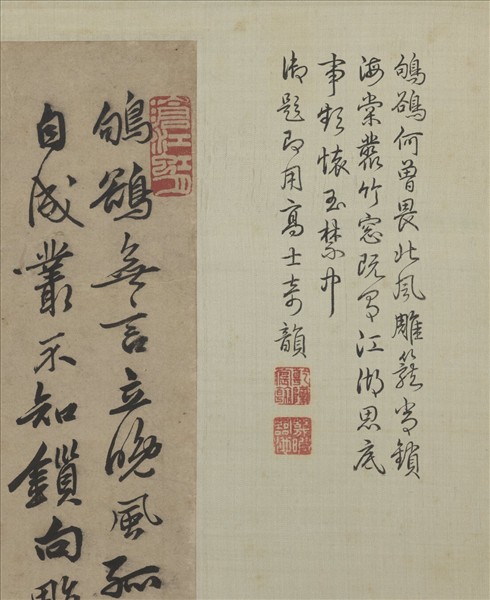 鴝鵒何曾畏北風雕籠常鎖
海棠叢竹窓既罕江湖思底
事頻懷玉禁中
御題即用高士奇韻
鴝鵒無言立晚風孤
自成叢不知鎖向雕